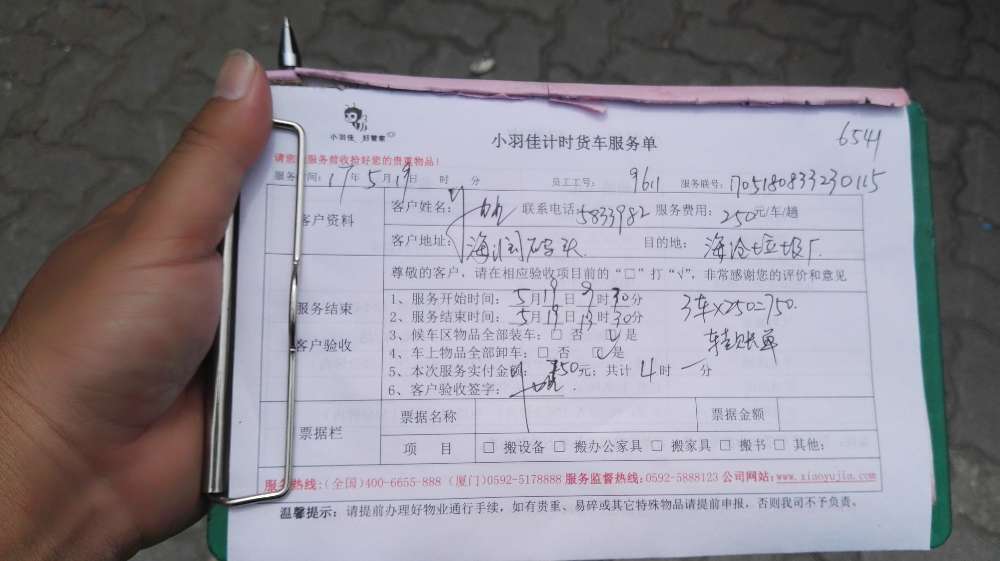 小羽佳 好管家
小羽佳计时货车服务单
6541
请您在服务前收拾好您的贵重物品!
服务时间: 17年5月19日 时 分 员工工号: 9611 服务联号: 1705180833230115
客户资料
客户姓名: 联系电话: 5833982 服务费用: 250元/车/趟
客户地址: 海润码头 目的地: 海沧垃圾厂
尊敬的客户,请在相应验收项目前的“□”打“√”,非常感谢您的评价和意见
服务结束
客户验收
1、服务开始时间: 5月19日9时30分
2、服务结束时间: 5月19日13时30分
3车×250=750.
3、候车区物品全部装车: □ 否 ☑是
转账单
4、车上物品全部卸车: □ 否 ☑是
5、本次服务实付金额: 750元; 共计4时一分
6、客户验收签字:
票据栏
票据名称 票据金额
项 目 □ 搬设备 □ 搬办公家具 □ 搬家具 □ 搬书 □ 其他:
服务热线:(全国)400-6655-888 (厦门)0592-5178888 服务监督热线:0592-5888123 公司网站:www.xiaoyujia.com
温馨提示: 请提前办理好物业通行手续,如有贵重、易碎或其它特殊物品请提前申报,否则我司不予负责。